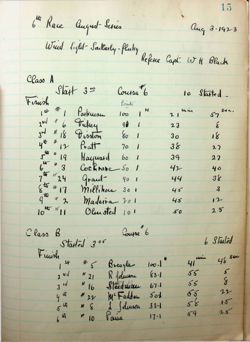 15
6th Race August Series Aug 3-1923
Wind Light-Southerly-Fluky
Referee Capt. W H Black
Class A
Start 3 00 Course #6 10 Started
Finish Points min sec
1st #1 Parkman 100 1 h 21 57
2nd #6 90 1 23 8
3rd #18 80 1 30 18
4th #12 Pratt 70 1 38 27
5th #19 Hayward 60 1 39 27
6th #3 Cochrane 50 1 42 40
7th #24 Grant 40 1 44 38
8th #17 30 1 45 3
9th #2 Madeira 20 1 45 12
10th #11 Olmsted 10 1 50 25
Class B Course #6
Started 3 05 6 Started
Finish min sec
1st #5 100-1 h 41 45
2nd #21 R Johnson 83-1 55 5
3rd #16 67-1 55 8
4th #22 McFadden 50-1 55
5th #8 Johnson 33-1 58 15
6th #10 17-1 59 25